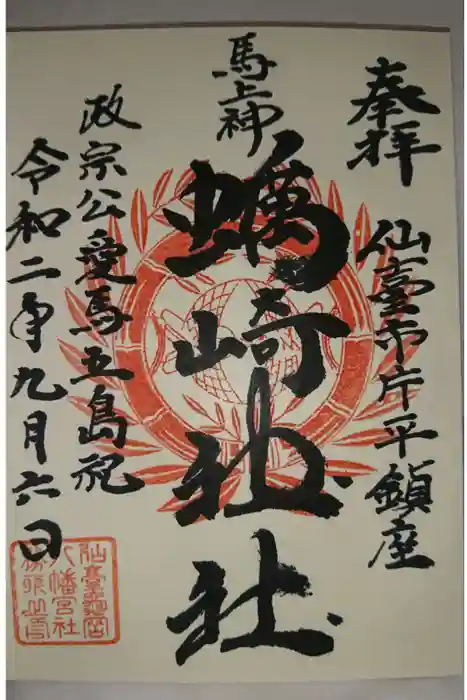 奉拝
仙臺市片平鎮座
馬上神
蠣崎神社
政宗公愛馬五島祀
令和二年九月六日
仙臺亀岡
八幡宮社
務所之印